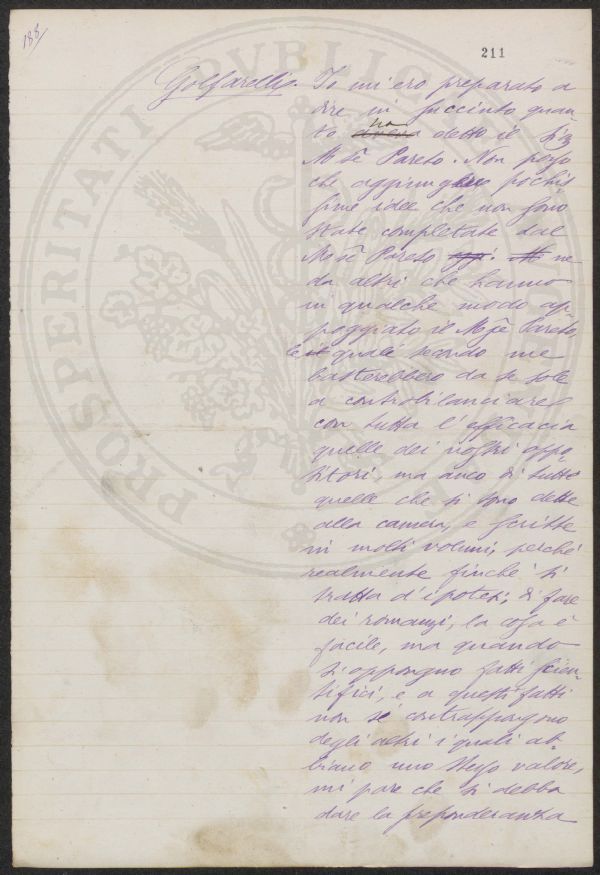 188/
211
Golfarelli. Io mi ero preparato a
dire in succinto quan-
to ha detto il Sig
Mse Pareto. Non posso
che aggiungere pochis-
sime idee che non sono
state completate dal
Mse Pareto ne
da altri che hanno
in qualche modo ap-
poggiato il Mse Pareto,
le quali secondo me
basterebbero da se sole
a controbilanciare
con tutta l'efficacia
quelle dei nostri oppo-
sitori, ma anco di tutte
quelle che si sono dette
alla camera, e scritte
in molti volumi, perché
realmente finché si
tratta d'ipotesi, di fare
dei romanzi, la cosa è
facile, ma quando
si oppongno fatti scien-
tifici, e a questi fatti
non si contrappongono
degli altri i quali ab-
biano uno stesso valore,
mi pare che si debba
dare la preponderanza
PROSPERITATI PVBLICAE